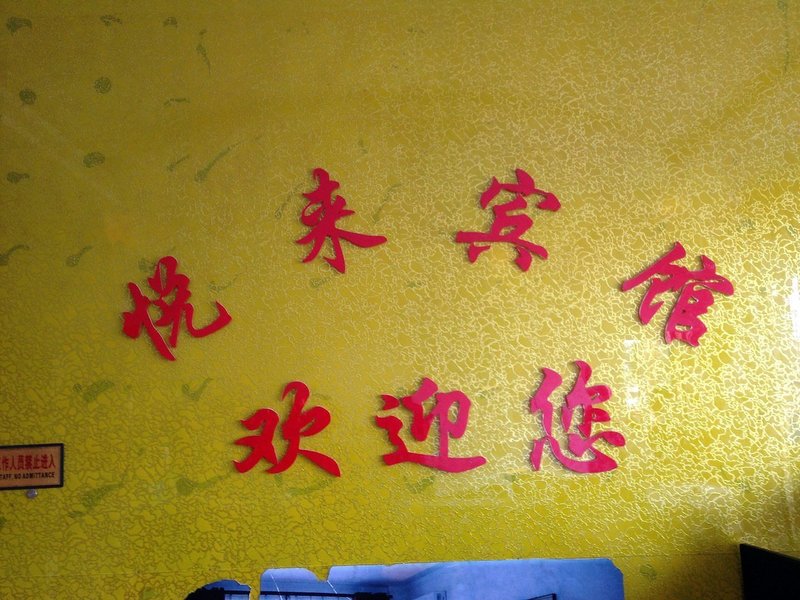 悦来宾馆
欢迎您
作人员禁止进入
TAFF NO ADMITTANCE